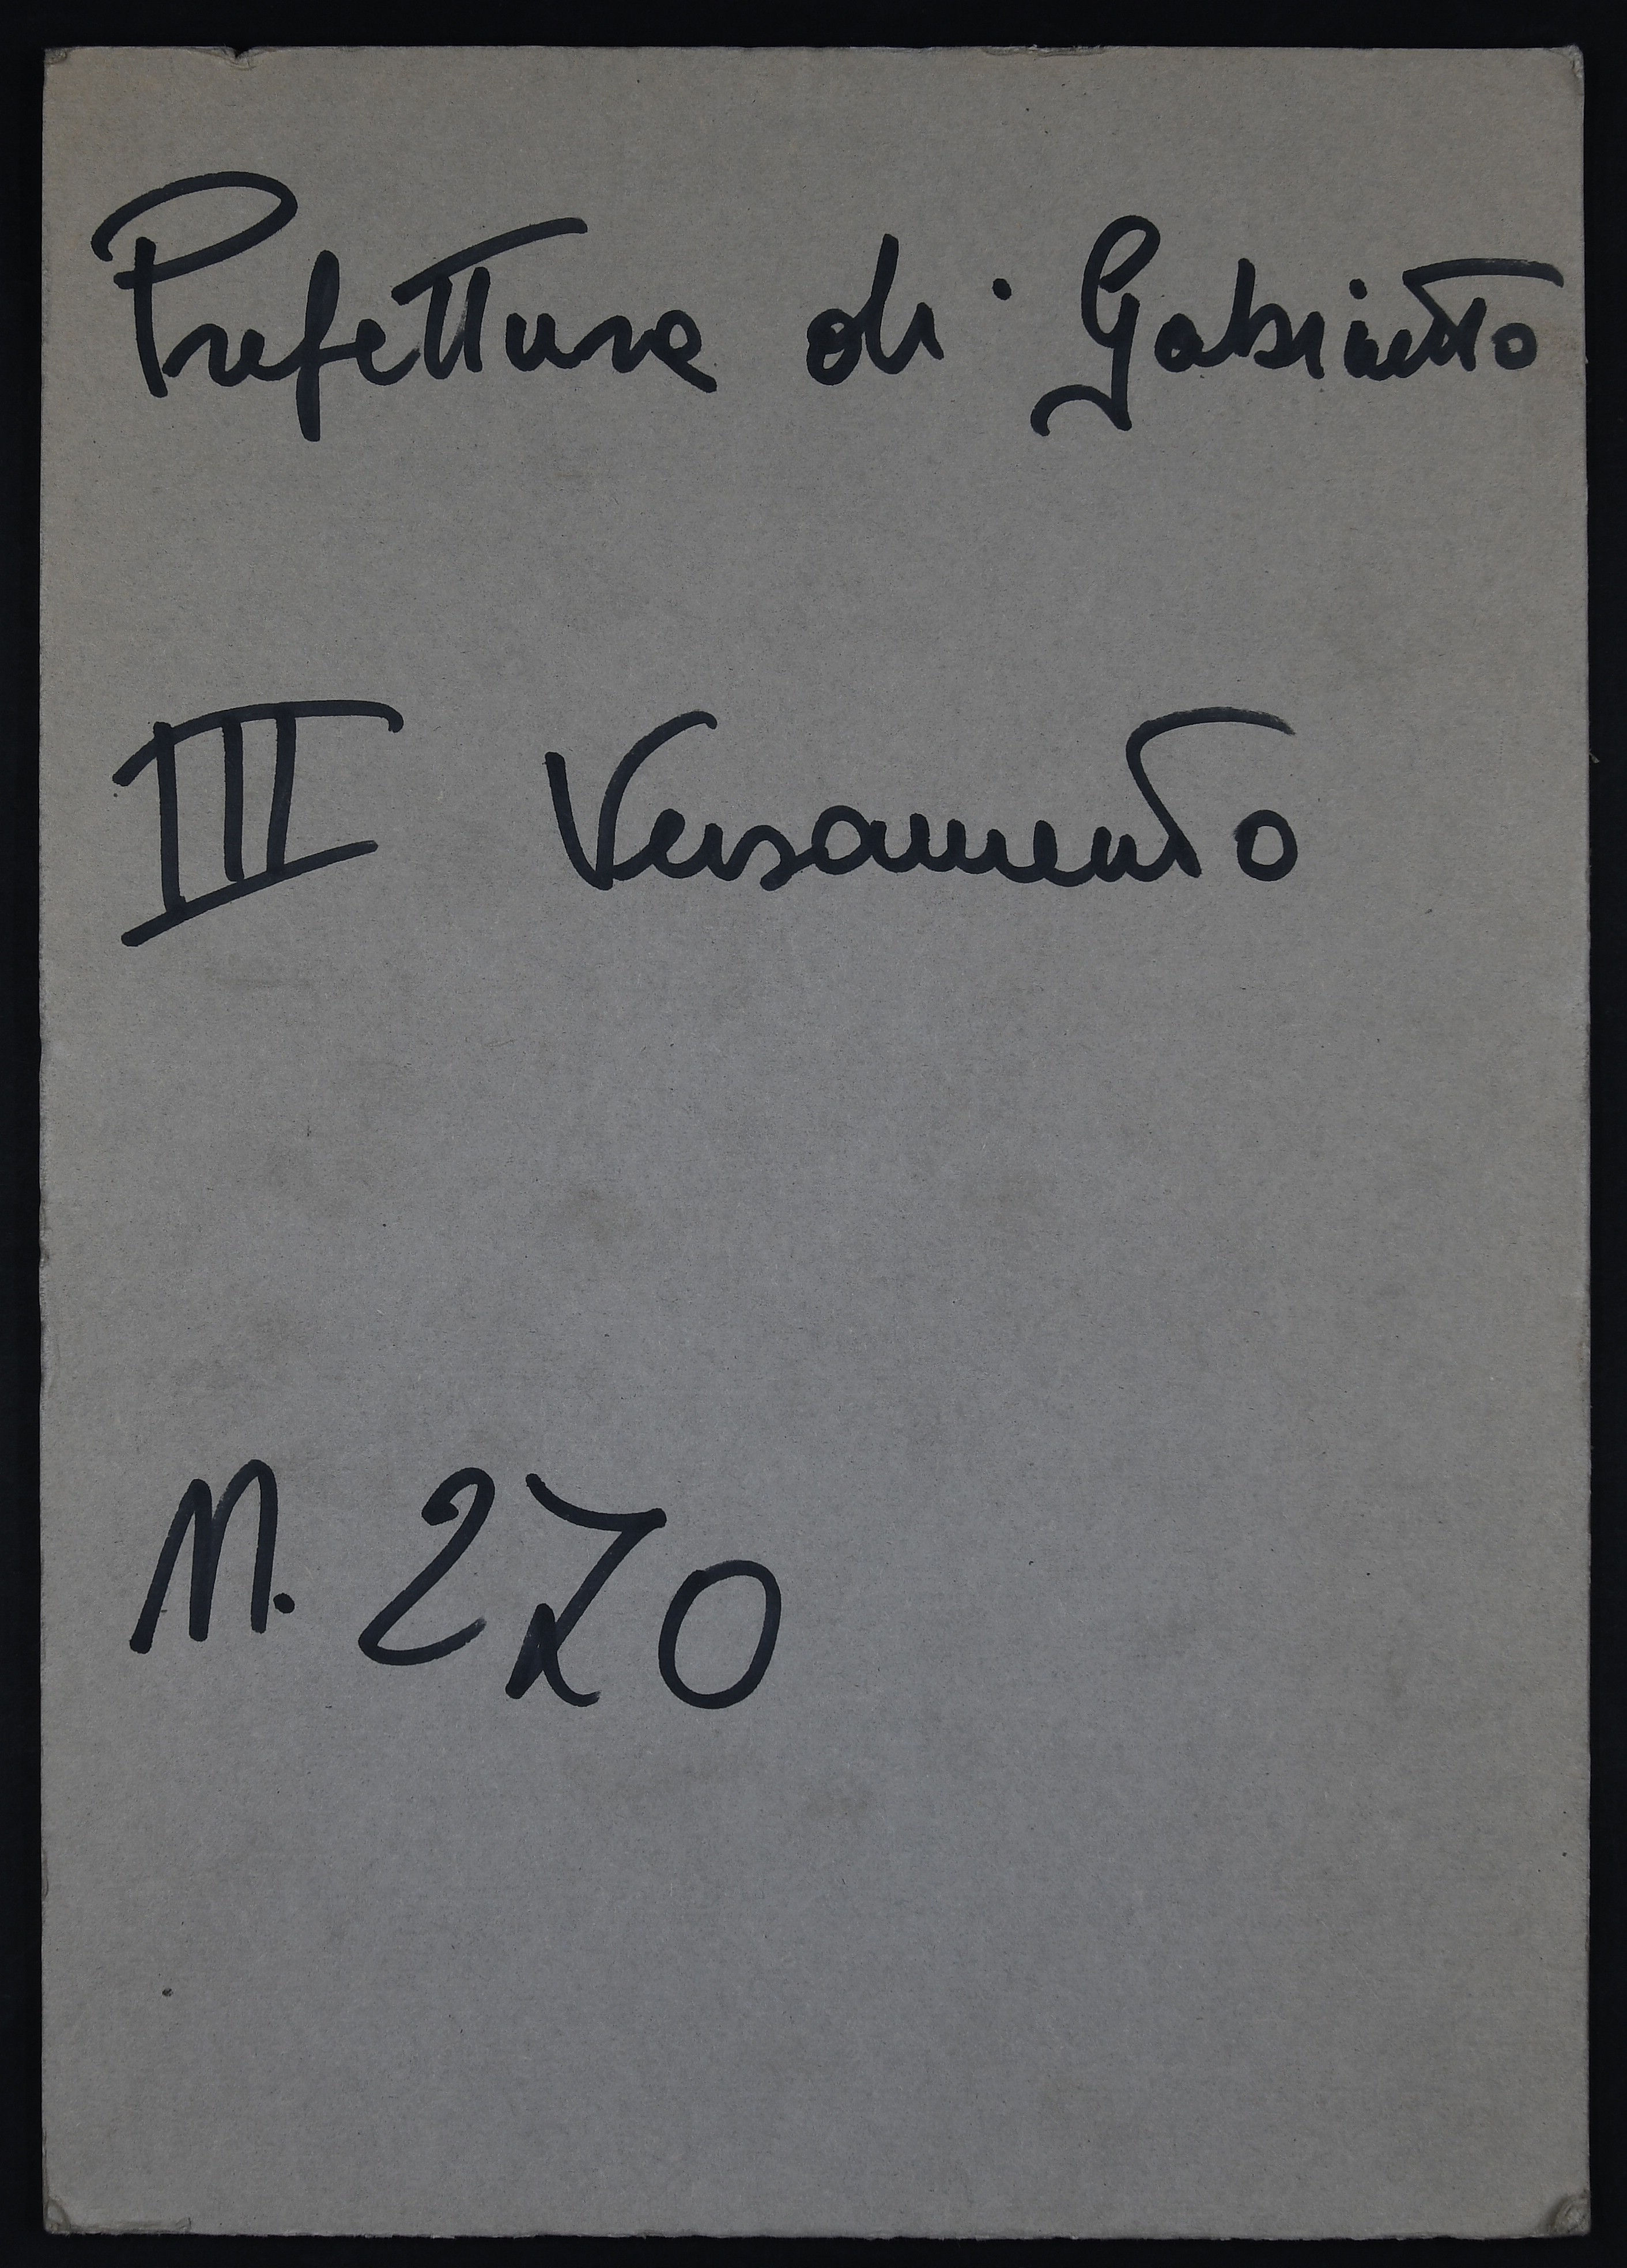 Prefettura di Gabinetto
III Versamento
N. 270